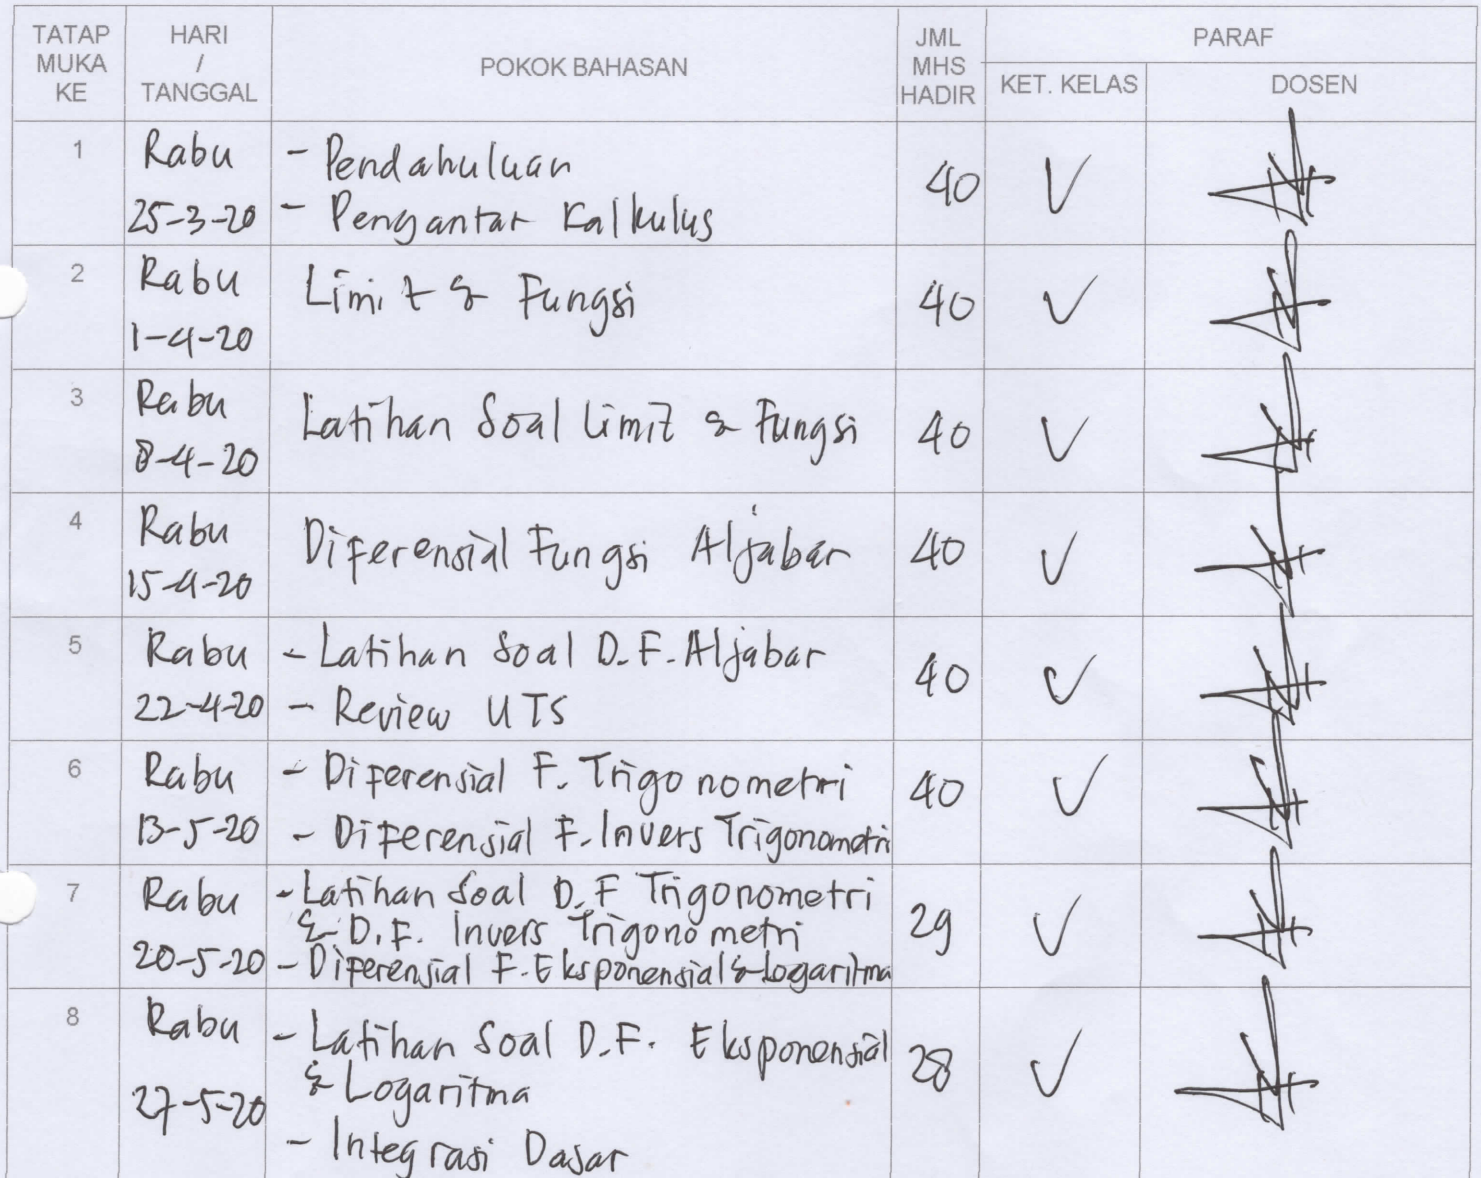 TATAP MUKA KE
HARI / TANGGAL
POKOK BAHASAN
JML MHS HADIR
PARAF
KET. KELAS
DOSEN
1
Rabu
25-3-20
- Pendahuluan
- Pengantar Kalkulus
40
2
Rabu
1-4-20
Limit & Fungsi
40
3
Rabu
8-4-20
Latihan Soal Limit & Fungsi
40
4
Rabu
15-4-20
Diferensial Fungsi Aljabar
40
5
Rabu
22-4-20
- Latihan Soal D.F. Aljabar
- Review UTS
40
6
Rabu
13-5-20
- Diferensial F. Trigonometri
- Diferensial F. Invers Trigonometri
40
7
Rabu
20-5-20
- Latihan Soal D.F Trigonometri
& D.F. Invers Trigonometri
- Diferensial F. Eksponensial & Logaritma
29
8
Rabu
27-5-20
- Latihan Soal D.F. Eksponensial
& Logaritma
- Integrasi Dasar
28